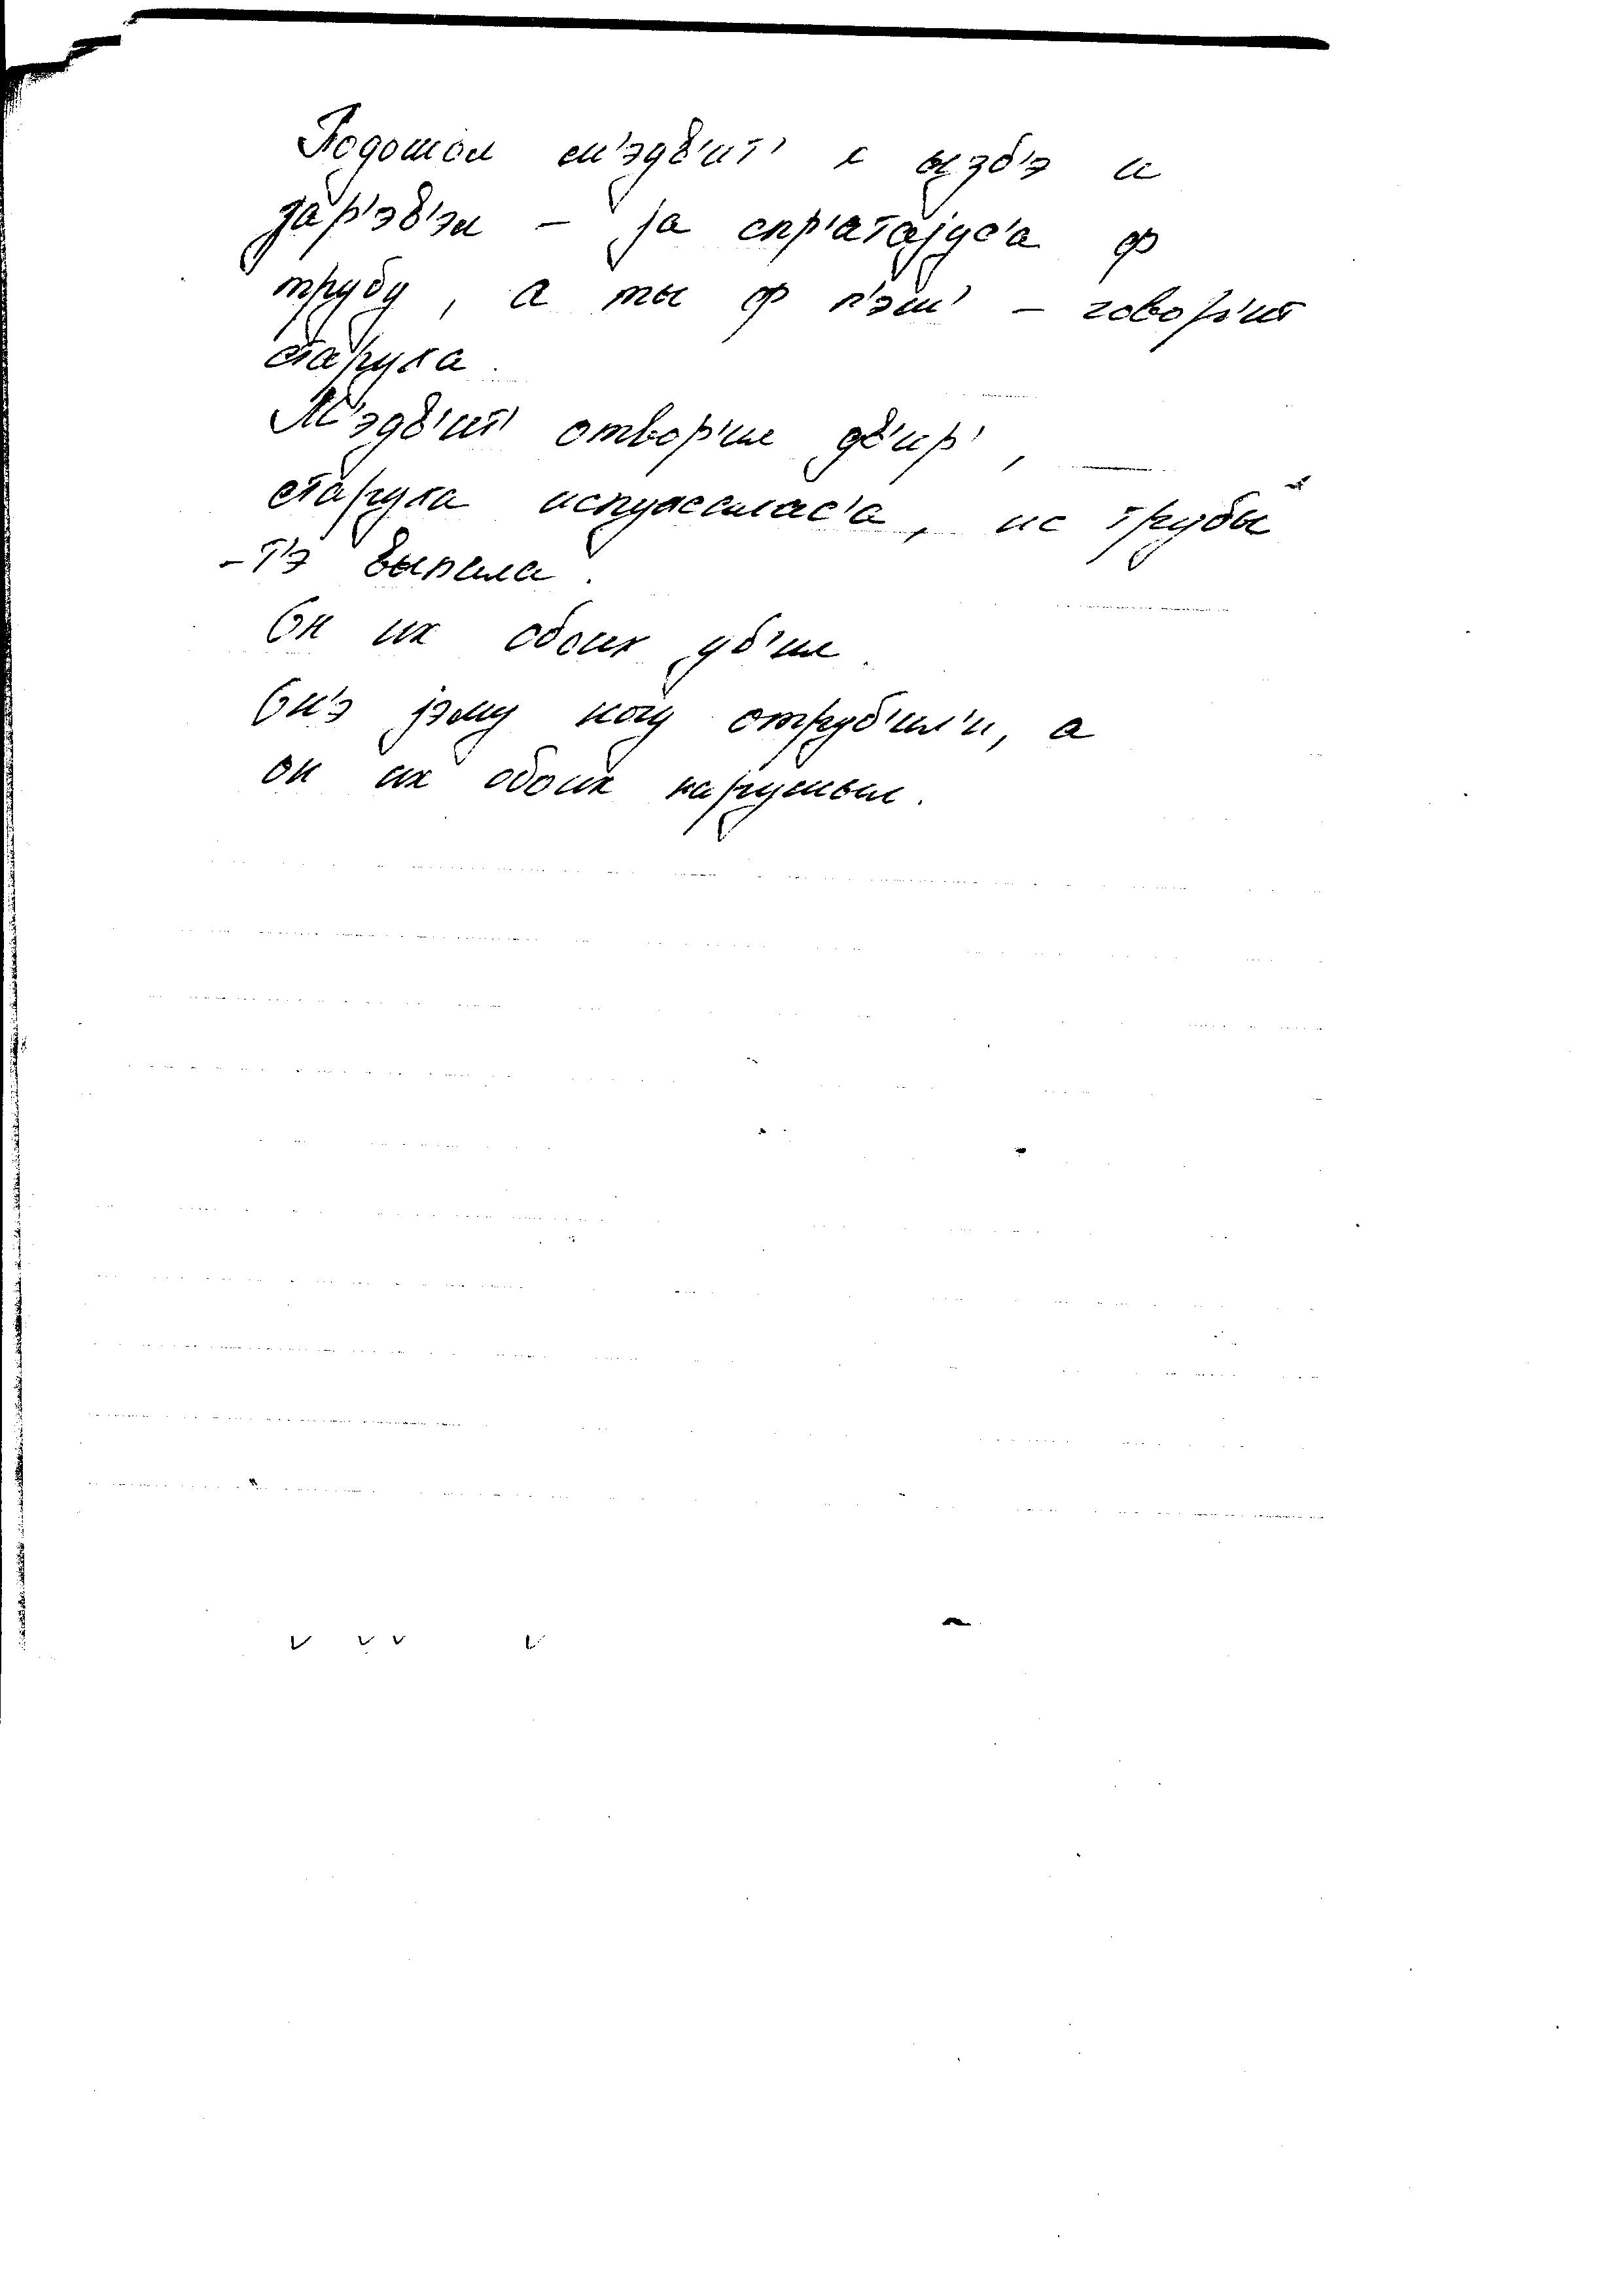 Подошол м'эдв'ит' к ызб'э и
зар'эв'эл – ја спр'атајус'а ф
трубу, а ты ф п'эш' – говор'ит
старуха.
М'эдв'ит' отвор'ил дв'ир',
старуха испужалас'а, ис трубы
-т'э выпала.
Он их обоих уб'ил.
Он'э јэму ногу отруб'ил'и, а
он их обоих нарушыл.